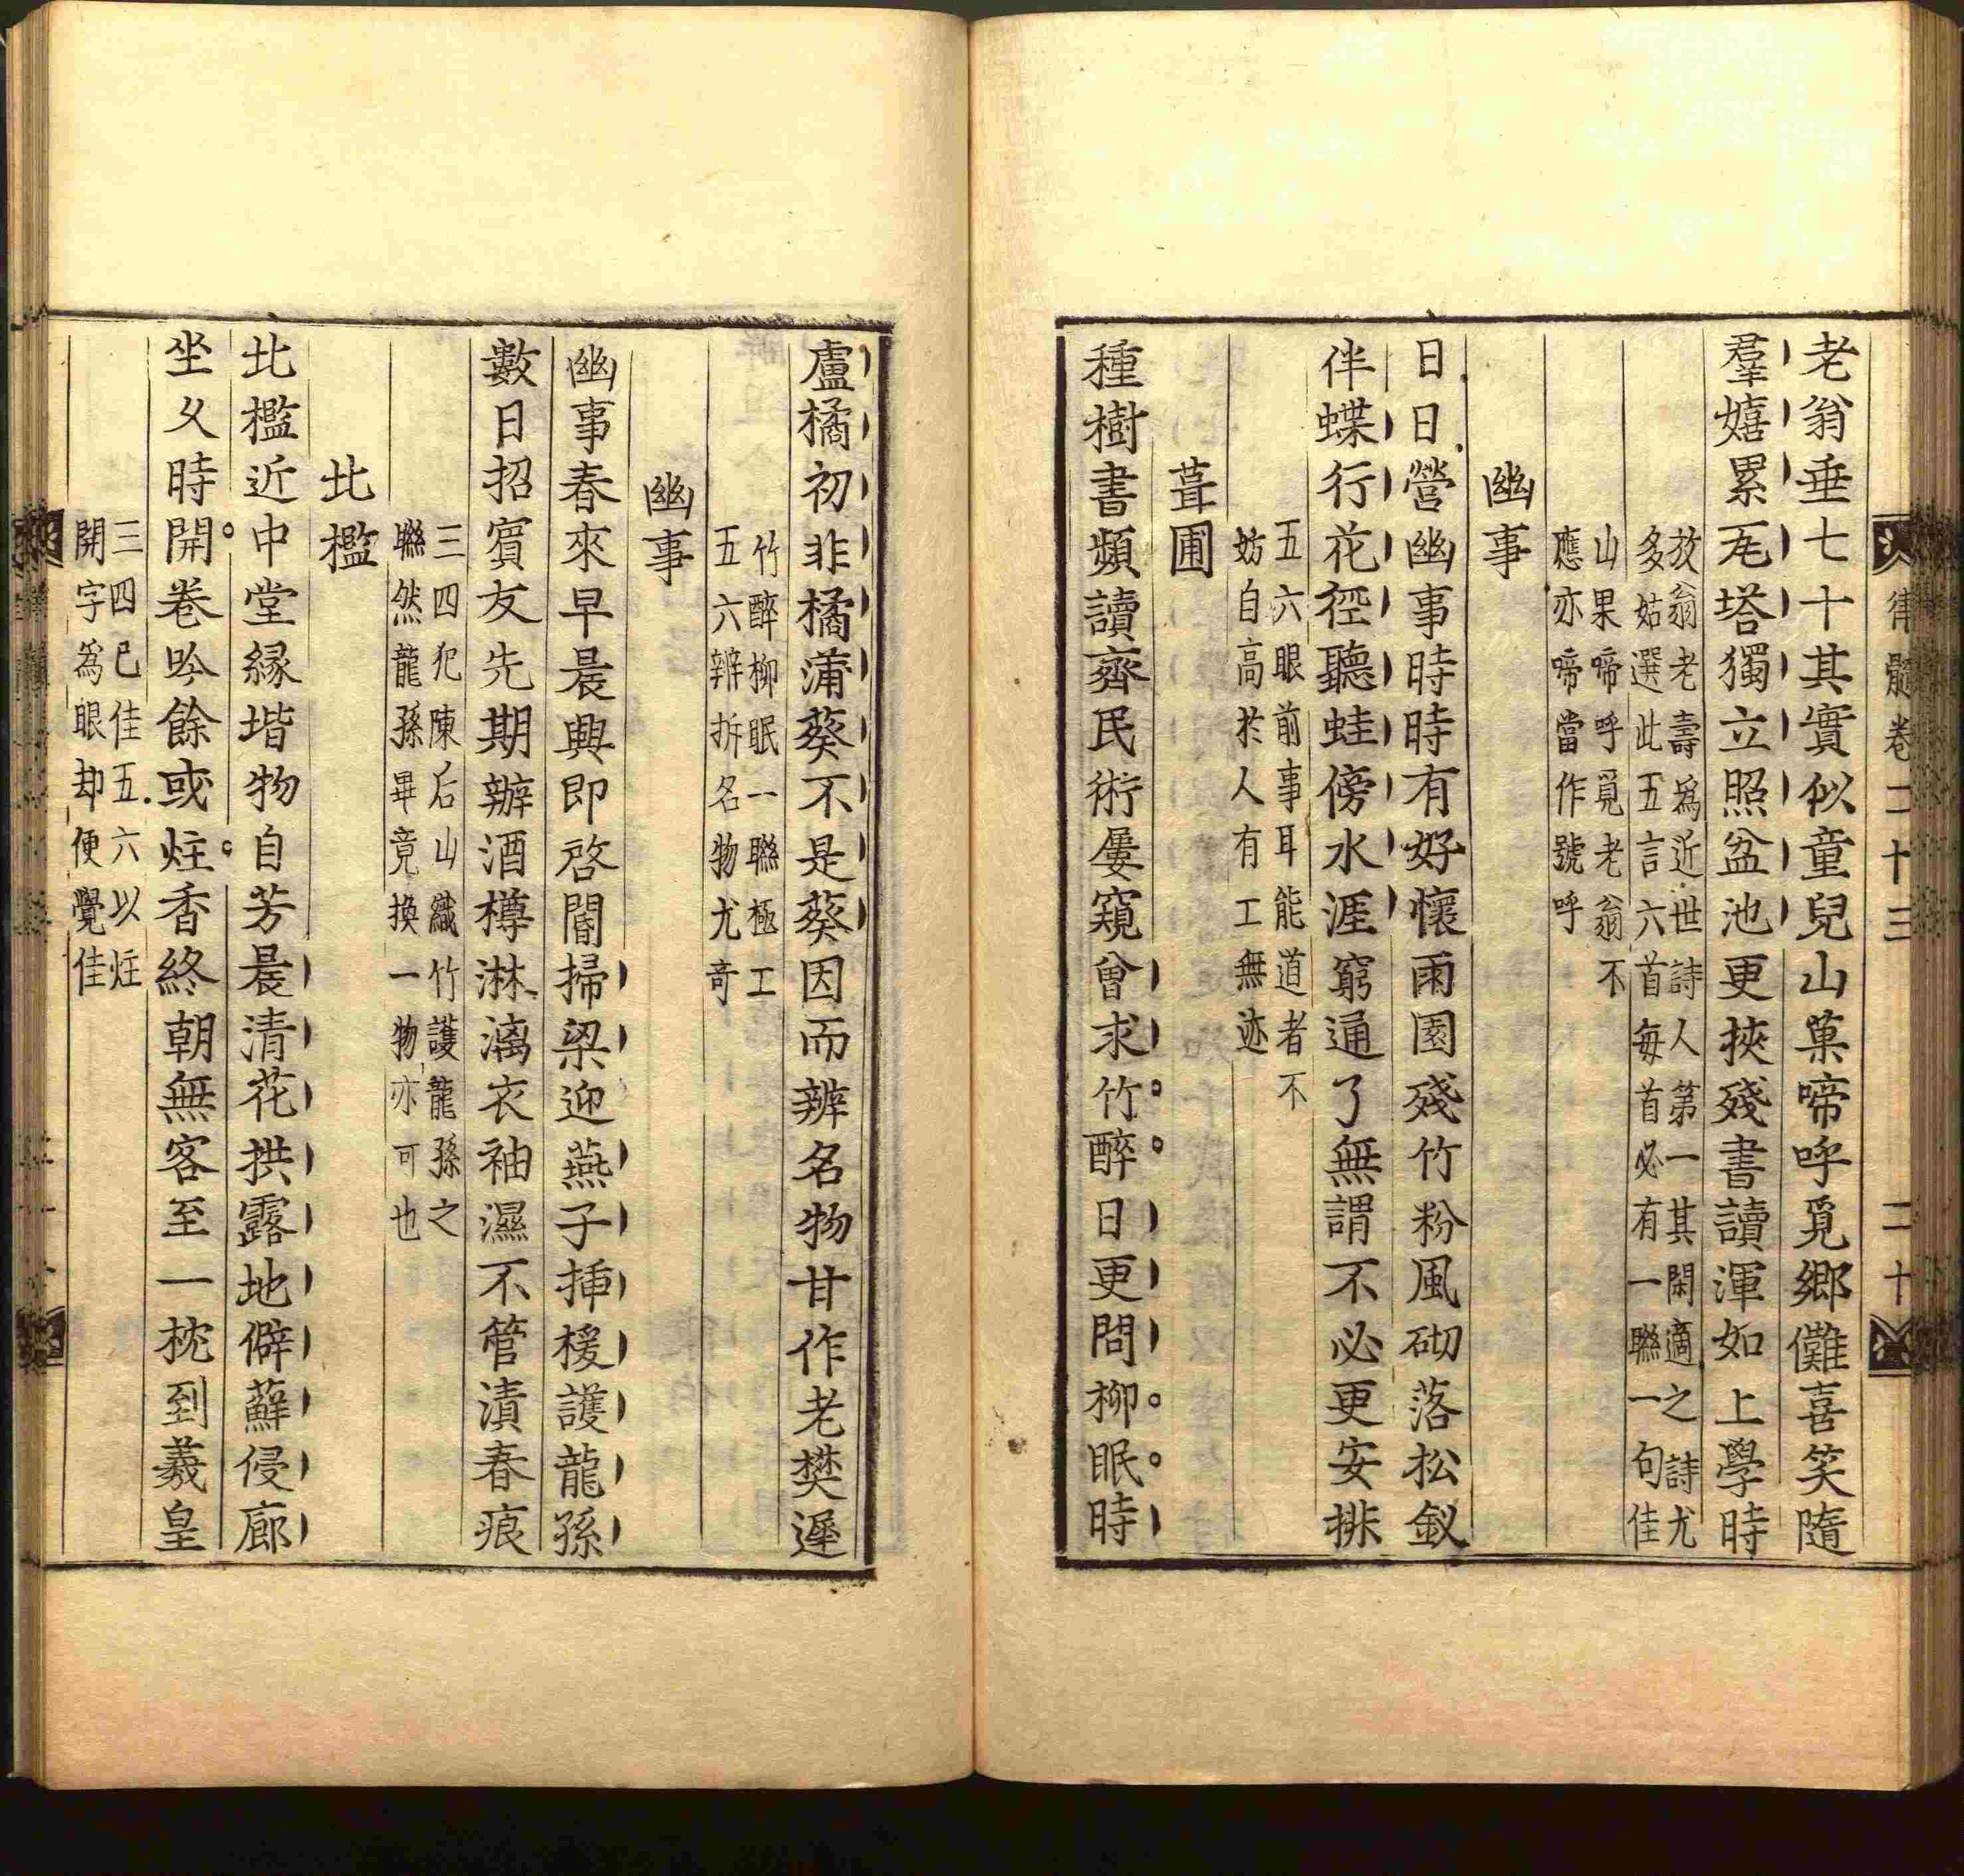 律髓卷二十三 二十
老翁垂七十其實似童兒山菓啼呼覓鄉儺喜笑隨
羣嬉累瓦塔獨立照盆池更挾殘書讀渾如上學時
放翁老壽爲近世詩人第一其閑適之詩尤
多姑選此五言六首每首必有一聯一句佳
山果啼呼覓老翁不
應亦啼當作號呼
幽事
日日營幽事時時有好懷雨園殘竹粉風砌落松釵
伴蝶行花徑聽蛙傍水涯窮通了無謂不必更安排
五六眼前事耳能道者不
妨自高於人有工無迹
葺圃
種樹書頻讀齊民術屢窺曾求竹醉日更問柳眠時
盧橘初非橘蒲葵不是葵因而辨名物甘作老樊遲
竹醉柳眠一聯極工
五六辨拆名物尤奇
幽事
幽事春來早晨興即啓閽掃梁迎燕子揷楥護龍孫
數日招賓友先期辦酒樽淋漓衣袖濕不管漬春痕
三四犯陳后山織竹護龍孫之
聯然龍孫畢竟換一物亦可也
北檻
北檻近中堂緣堦物自芳晨清花拱露地僻蘚侵廊
坐久時開卷吟餘或炷香終朝無客至一枕到羲皇
三四已佳五六以炷
開字爲眼却便覺佳